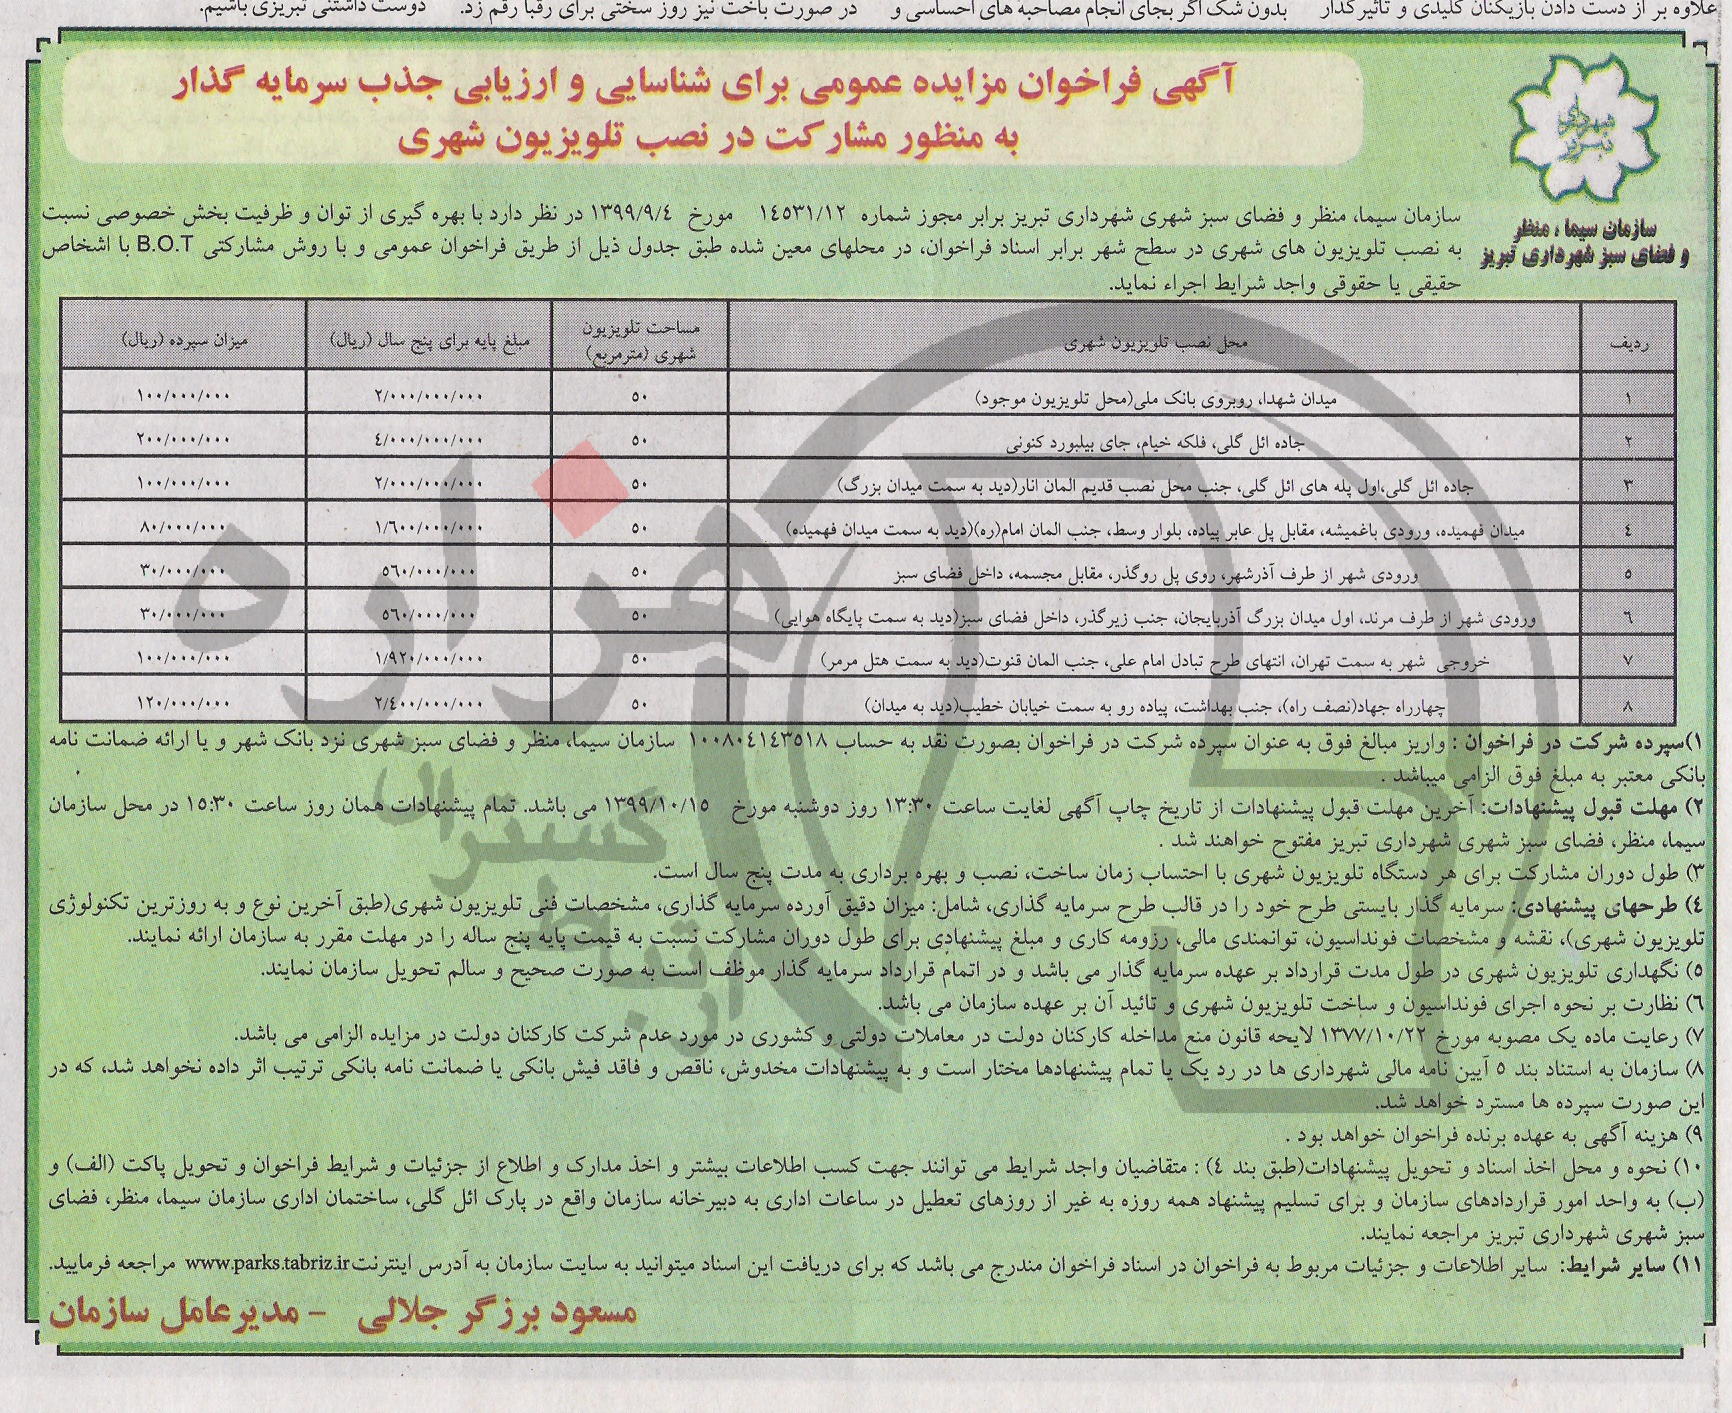 علاوه بر از دست دادن بازیکنان کلیدی و تاثیرگذار
بدون شک اگر بجای انجام مصاحبه های احساسی و
در صورت باخت نیز روز سختی برای رقبا رقم زد.
دوست داشتنی تبریزی باشیم.
آگهی فراخوان مزایده عمومی برای شناسایی و ارزیابی جذب سرمایه گذار
به منظور مشارکت در نصب تلویزیون شهری
شهرداری تبریز
سازمان سیما، منظر
و فضای سبز شهرداری تبریز
سازمان سیما، منظر و فضای سبز شهری شهرداری تبریز برابر مجوز شماره ۱٤٥۳۱/۱۲ مورخ ۱۳۹۹/۹/٤ در نظر دارد با بهره گیری از توان و ظرفیت بخش خصوصی نسبت
به نصب تلویزیون های شهری در سطح شهر برابر اسناد فراخوان، در محلهای معین شده طبق جدول ذیل از طریق فراخوان عمومی و با روش مشارکتی B.O.T با اشخاص
حقیقی یا حقوقی واجد شرایط اجراء نماید.
ردیف | محل نصب تلویزیون شهری | مساحت تلویزیون شهری (مترمربع) | مبلغ پایه برای پنج سال (ریال) | میزان سپرده (ریال)
۱ | میدان شهدا، روبروی بانک ملی(محل تلویزیون موجود) | ٥۰ | ۲/۰۰۰/۰۰۰/۰۰۰ | ۱۰۰/۰۰۰/۰۰۰
۲ | جاده ائل گلی، فلکه خیام، جای بیلبورد کنونی | ٥۰ | ٤/۰۰۰/۰۰۰/۰۰۰ | ۲۰۰/۰۰۰/۰۰۰
۳ | جاده ائل گلی،اول پله های ائل گلی، جنب محل نصب قدیم المان انار(دید به سمت میدان بزرگ) | ٥۰ | ۲/۰۰۰/۰۰۰/۰۰۰ | ۱۰۰/۰۰۰/۰۰۰
٤ | میدان فهمیده، ورودی باغمیشه، مقابل پل عابر پیاده، بلوار وسط، جنب المان امام(ره)(دید به سمت میدان فهمیده) | ٥۰ | ۱/٦۰۰/۰۰۰/۰۰۰ | ۸۰/۰۰۰/۰۰۰
٥ | ورودی شهر از طرف آذرشهر، روی پل روگذر، مقابل مجسمه، داخل فضای سبز | ٥۰ | ٥٦۰/۰۰۰/۰۰۰ | ۳۰/۰۰۰/۰۰۰
٦ | ورودی شهر از طرف مرند، اول میدان بزرگ آذربایجان، جنب زیرگذر، داخل فضای سبز(دید به سمت پایگاه هوایی) | ٥۰ | ٥٦۰/۰۰۰/۰۰۰ | ۳۰/۰۰۰/۰۰۰
۷ | خروجی شهر به سمت تهران، انتهای طرح تبادل امام علی، جنب المان قنوت(دید به سمت هتل مرمر) | ٥۰ | ۱/۹۲۰/۰۰۰/۰۰۰ | ۱۰۰/۰۰۰/۰۰۰
۸ | چهارراه جهاد(نصف راه)، جنب بهداشت، پیاده رو به سمت خیابان خطیب(دید به میدان) | ٥۰ | ۲/٤۰۰/۰۰۰/۰۰۰ | ۱۲۰/۰۰۰/۰۰۰
۱)سپرده شرکت در فراخوان : واریز مبالغ فوق به عنوان سپرده شرکت در فراخوان بصورت نقد به حساب ۱۰۰۸۰٤۱٤۳٥۱۸ سازمان سیما، منظر و فضای سبز شهری نزد بانک شهر و یا ارائه ضمانت نامه
بانکی معتبر به مبلغ فوق الزامی میباشد .
۲) مهلت قبول پیشنهادات: آخرین مهلت قبول پیشنهادات از تاریخ چاپ آگهی لغایت ساعت ۱۳:۳۰ روز دوشنبه مورخ ۱۳۹۹/۱۰/۱٥ می باشد. تمام پیشنهادات همان روز ساعت ۱٥:۳۰ در محل سازمان
سیما، منظر، فضای سبز شهری شهرداری تبریز مفتوح خواهند شد .
۳) طول دوران مشارکت برای هر دستگاه تلویزیون شهری با احتساب زمان ساخت، نصب و بهره برداری به مدت پنج سال است.
٤) طرحهای پیشنهادی: سرمایه گذار بایستی طرح خود را در قالب طرح سرمایه گذاری، شامل: میزان دقیق آورده سرمایه گذاری، مشخصات فنی تلویزیون شهری(طبق آخرین نوع و به روزترین تکنولوژی
تلویزیون شهری)، نقشه و مشخصات فونداسیون، توانمندی مالی، رزومه کاری و مبلغ پیشنهادی برای طول دوران مشارکت نسبت به قیمت پایه پنج ساله را در مهلت مقرر به سازمان ارائه نمایند.
٥) نگهداری تلویزیون شهری در طول مدت قرارداد بر عهده سرمایه گذار می باشد و در اتمام قرارداد سرمایه گذار موظف است به صورت صحیح و سالم تحویل سازمان نمایند.
٦) نظارت بر نحوه اجرای فونداسیون و ساخت تلویزیون شهری و تائید آن بر عهده سازمان می باشد.
۷) رعایت ماده یک مصوبه مورخ ۱۳۷۷/۱۰/۲۲ لایحه قانون منع مداخله کارکنان دولت در معاملات دولتی و کشوری در مورد عدم شرکت کارکنان دولت در مزایده الزامی می باشد.
۸) سازمان به استناد بند ٥ آیین نامه مالی شهرداری ها در رد یک یا تمام پیشنهادها مختار است و به پیشنهادات مخدوش، ناقص و فاقد فیش بانکی یا ضمانت نامه بانکی ترتیب اثر داده نخواهد شد، که در
این صورت سپرده ها مسترد خواهد شد.
۹) هزینه آگهی به عهده برنده فراخوان خواهد بود .
۱۰) نحوه و محل اخذ اسناد و تحویل پیشنهادات(طبق بند ٤) : متقاضیان واجد شرایط می توانند جهت کسب اطلاعات بیشتر و اخذ مدارک و اطلاع از جزئیات و شرایط فراخوان و تحویل پاکت (الف) و
(ب) به واحد امور قراردادهای سازمان و برای تسلیم پیشنهاد همه روزه به غیر از روزهای تعطیل در ساعات اداری به دبیرخانه سازمان واقع در پارک ائل گلی، ساختمان اداری سازمان سیما، منظر، فضای
سبز شهری شهرداری تبریز مراجعه نمایند.
۱۱) سایر شرایط: سایر اطلاعات و جزئیات مربوط به فراخوان در اسناد فراخوان مندرج می باشد که برای دریافت این اسناد میتوانید به سایت سازمان به آدرس اینترنت www.parks.tabriz.ir مراجعه فرمایید.
مسعود برزگر جلالی - مدیرعامل سازمان
هزاره
گستران
ارتباط